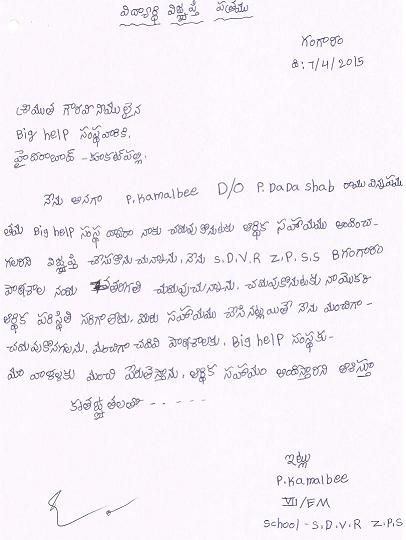 విద్యార్థి విజ్ఞప్తి పత్రము
గంగారం
ది: 7/4/2015
శ్రీయుత గౌరవనీయులైన
Big help సంస్థవారికి,
హైదరాబాద్ - కూకట్‌పల్లి.
నేను అనగా P.Kamalbee D/O P.DaDa shab రాయు విన్నపము
తమ Big help సంస్థ ద్వారా నాకు చదువుకొనుటకు ఆర్థిక సహాయము అందించ-
గలరని విజ్ఞప్తి చేసుకొనుచున్నాను, నేను S.D.V.R Z.P.S.S గంగారం
పాఠశాల నందు తరగతి చదువుచున్నాను, చదువుకొనుటకు నా యొక్క
ఆర్థిక పరిస్థితి సరిగాలేదు, మీరు సహాయము చేసినట్లయితే నేను మంచిగా-
చదువుకొనగలను, మంచిగా చదివి పాఠశాలకు, Big help సంస్థకు-
మా వాళ్ళకు మంచి పేరుతెస్తాను, ఆర్థిక సహాయం అందిస్తారని ఆశిస్తూ
కృతజ్ఞతలతో - - - - -
ఇట్లు
P.Kamalbee
VII/EM
School - S.D.V.R Z.P.S